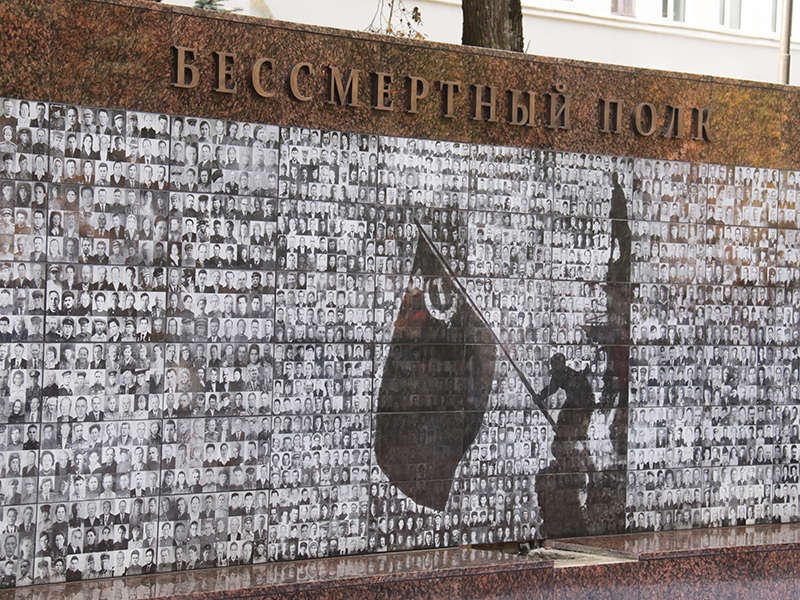 БЕССМЕРТНЫЙ ПОЛК